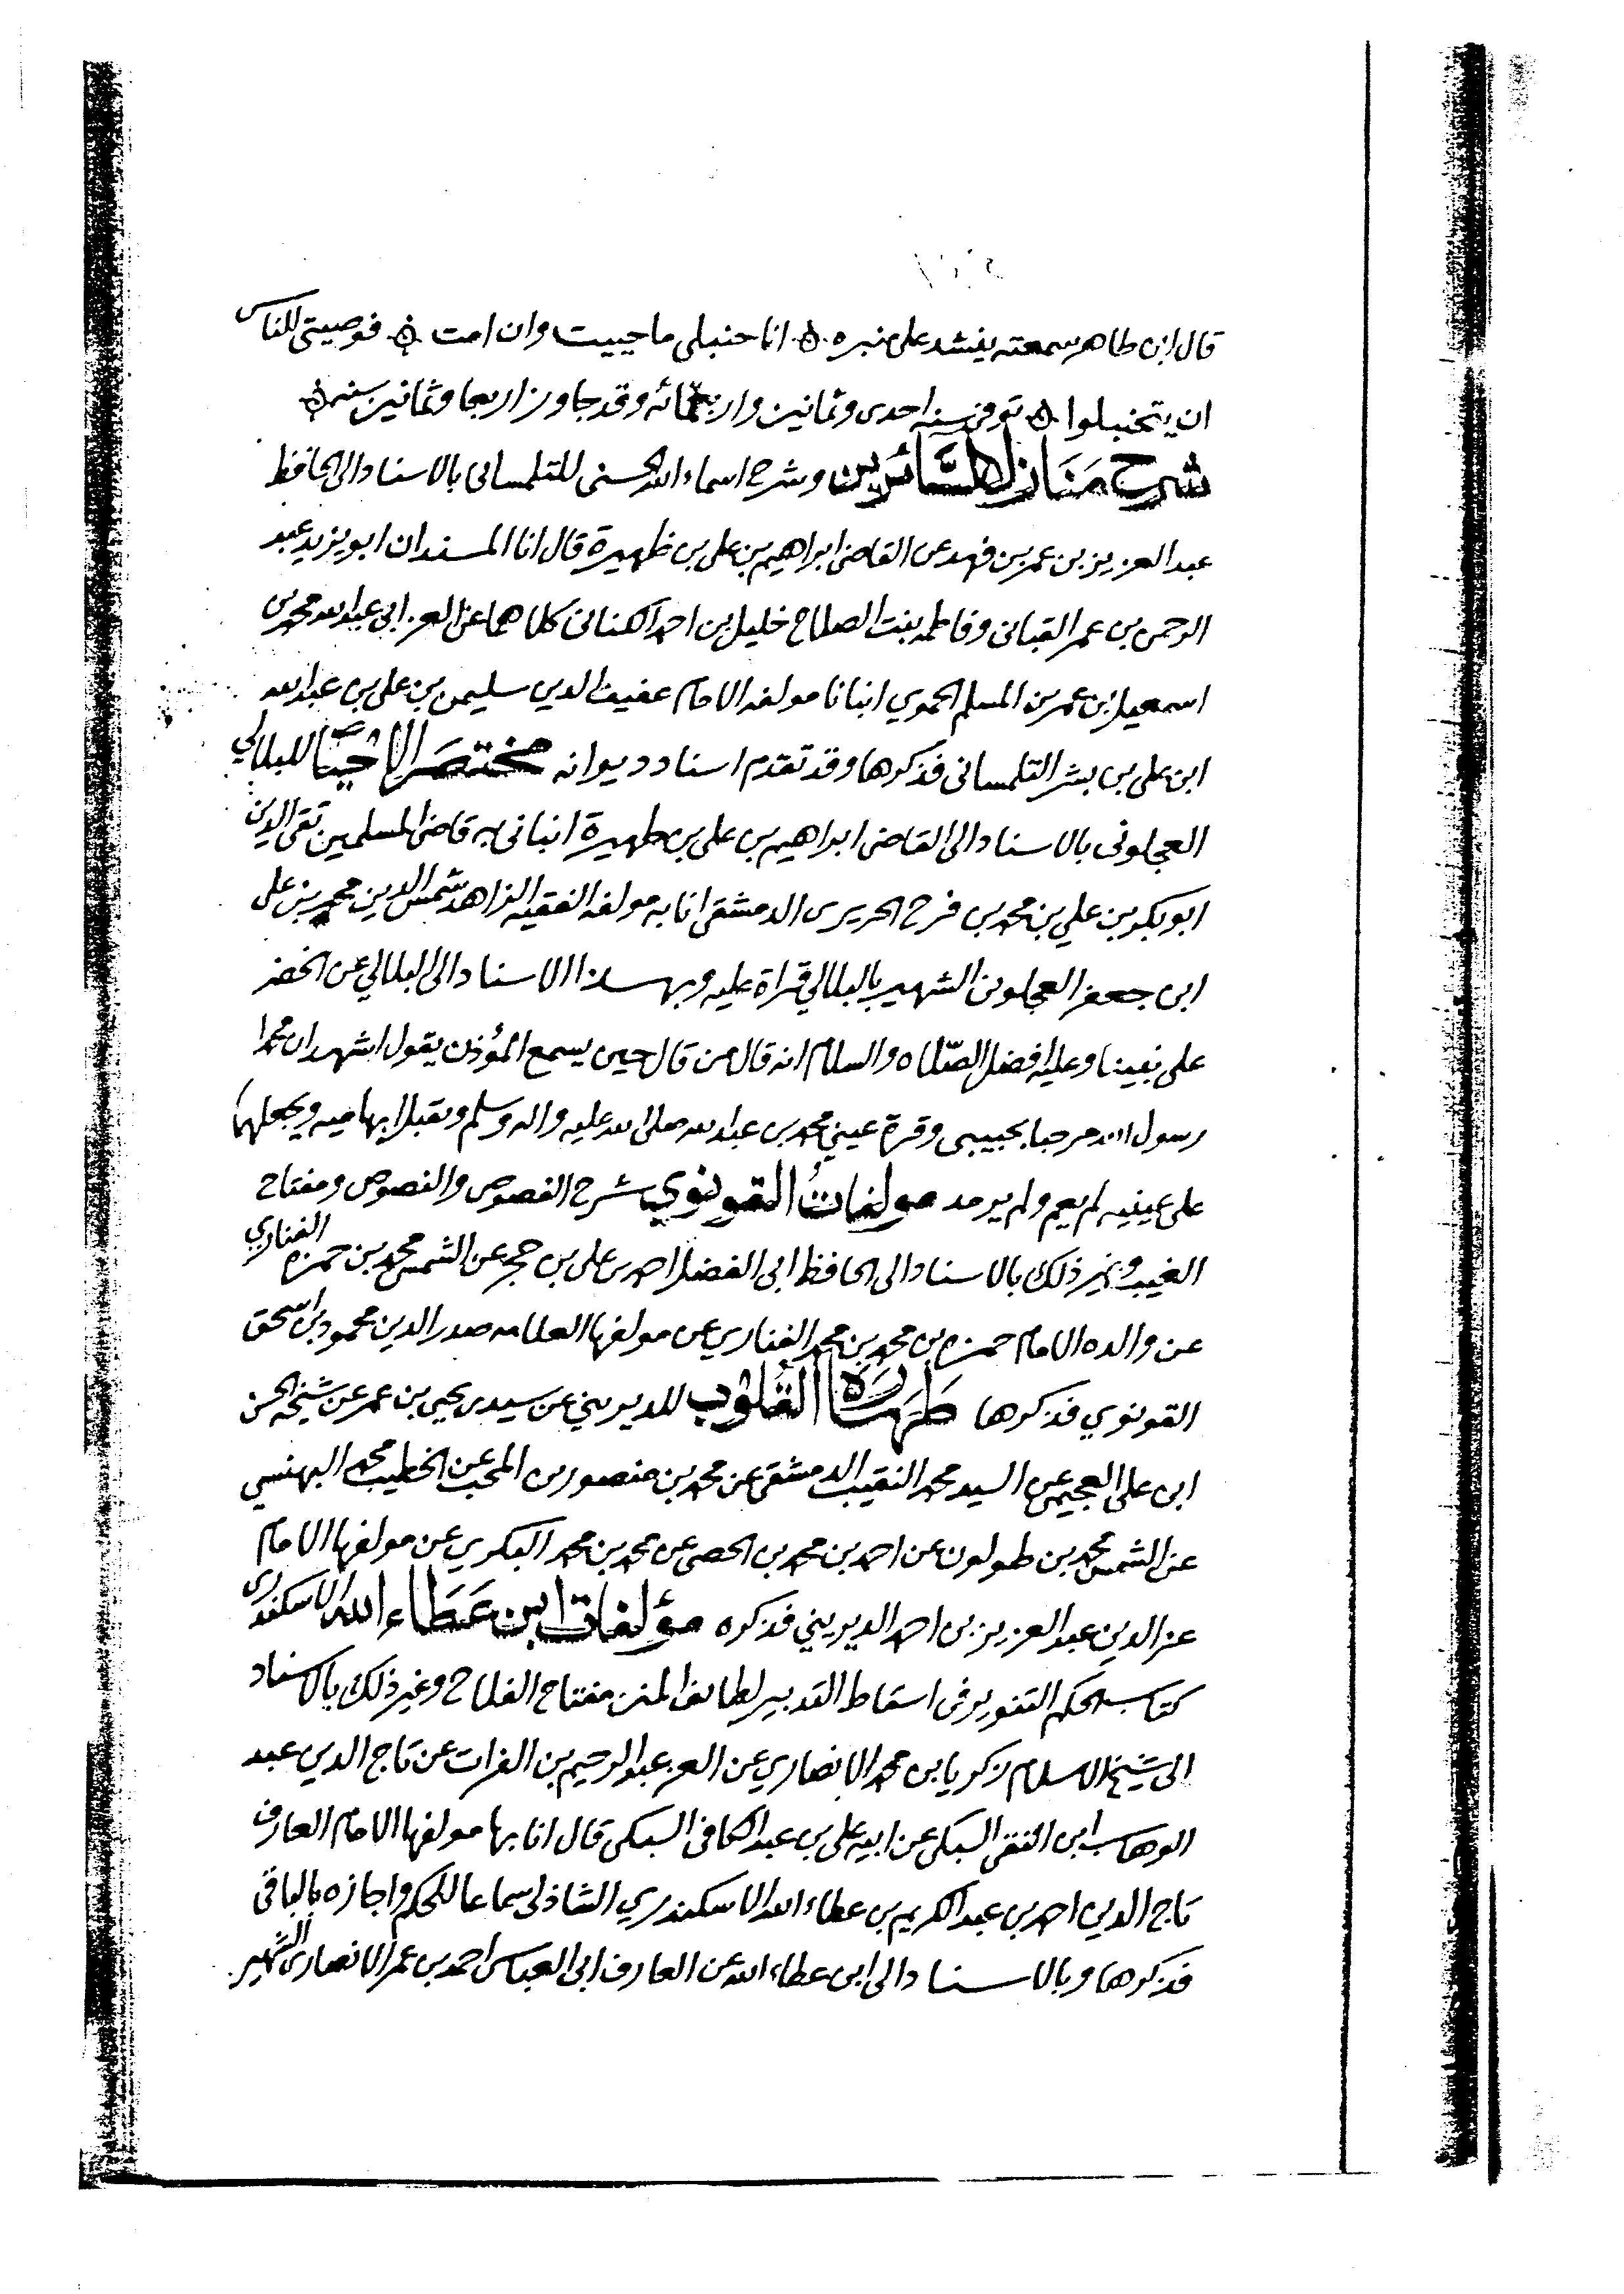 قال ابن طاهر سمعته ينشد على منبره ۞ انا حنبلى ما حييت وان امت ۞ فوصيتى للناس
ان يتحنبلوا ۞ توفى سنه احدى وثمانين واربعمائه وقد جاوز اربعا وثمانين سنه ۞
شرح منازل السائرين وشرح اسماء الله الحسنى للتلمسانى بالاسناد الى الحافظ
عبد العزيز بن عمر بن فهد عن القاضى ابراهيم بن على بن ظهيرة قال انا المسندان ابو يزيد عبد
الرحمن بن عمر القبانى وفاطمه بنت الصلاح خليل بن احمد الكنانى كلاهما عن العز ابى عبد الله محمد بن
اسمعيل بن عمر بن المسلم الحموي انبانا مولفه الامام عفيف الدين سليمن بن على بن عبد الله
ابن على بن بشر التلمسانى فذكرها وقد تقدم اسناد ديوانه مختصر الاحيا للبلالي
العجلونى بالاسناد الى القاضى ابراهيم بن على بن ظهيرة انبانى به قاضى المسلمين تقى الدين
ابو بكر بن علي بن محمد بن فرح الحريرى الدمشقى انا به مولفه الفقيه الزاهد شمس الدين محمد بن على
ابن جعفر العجلونى الشهير بالبلالي قراة عليه وبهذا الاسناد الى البلالي عن الخضر
على نبينا وعليه افضل الصلاه والسلام انه قال من قال حين يسمع المؤذن يقول اشهد ان محمدا
رسول الله مرحبا بحبيبى وقرة عيني محمد بن عبد الله صلى الله عليه واله وسلم ويقبل ابهاميه ويجعلهما
على عينيه لم يعم ولم يرمد مولفات القونوي شرح الفصوص والنصوص ومفتاح
الغيب وغير ذلك بالاسناد الى الحافظ ابى الفضل احمد بن على بن حجر عن الشمس محمد بن حمزه الفناري
عن والده الامام حمزه بن محمد بن محمد الفناري عن مولفها العلامه صدر الدين محمود بن اسحق
القونوي فذكرها طهارة القلوب للديريني عن سيدى يحيى بن عمر عن شيخه الحسن
ابن على العجيمى عن السيد محمد النقيب الدمشقى عن محمد بن منصور بن المحب عن الخطيب محمد البهنسي
عن الشمس محمد بن طولون عن احمد بن محمد بن الحصى عن محمد بن محمد البكري عن مولفها الامام
عز الدين عبد العزيز بن احمد الديريني فذكره مؤلفات ابن عطاء الله الاسكندرى
كتاب الحكم التنوير فى اسقاط التدبير لطايف المنن مفتاح الفلاح وغير ذلك بالاسناد
الى شيخ الاسلام زكريا بن محمد الانصاري عن العز عبد الرحيم بن الفرات عن تاج الدين عبد
الوهاب ابن التقى السبكى عن ابيه على بن عبد الكافى السبكى قال انا بها مولفها الامام العارف
تاج الدين احمد بن عبد الكريم بن عطاء الله الاسكندري الشاذلى سماعا للحكم واجازه بالباقى
فذكرها وبالاسناد الى ابن عطاء الله عن العارف ابى العباس احمد بن عمر الانصارى الشهير